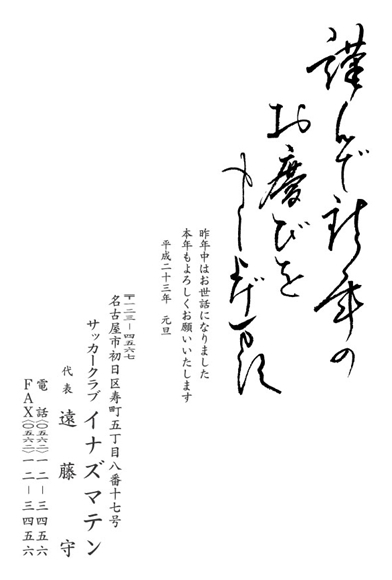 謹んで新年の
お慶びを
申し上げます
昨年中はお世話になりました
本年もよろしくお願いいたします
平成二十三年　元旦
〒一二三－四五六七
名古屋市初日区寿町五丁目八番十七号
サッカークラブ イナズマテン
代表　遠藤　守
電話(〇五六二)一二－三四五六
FAX(〇五六二)一二－三四五六